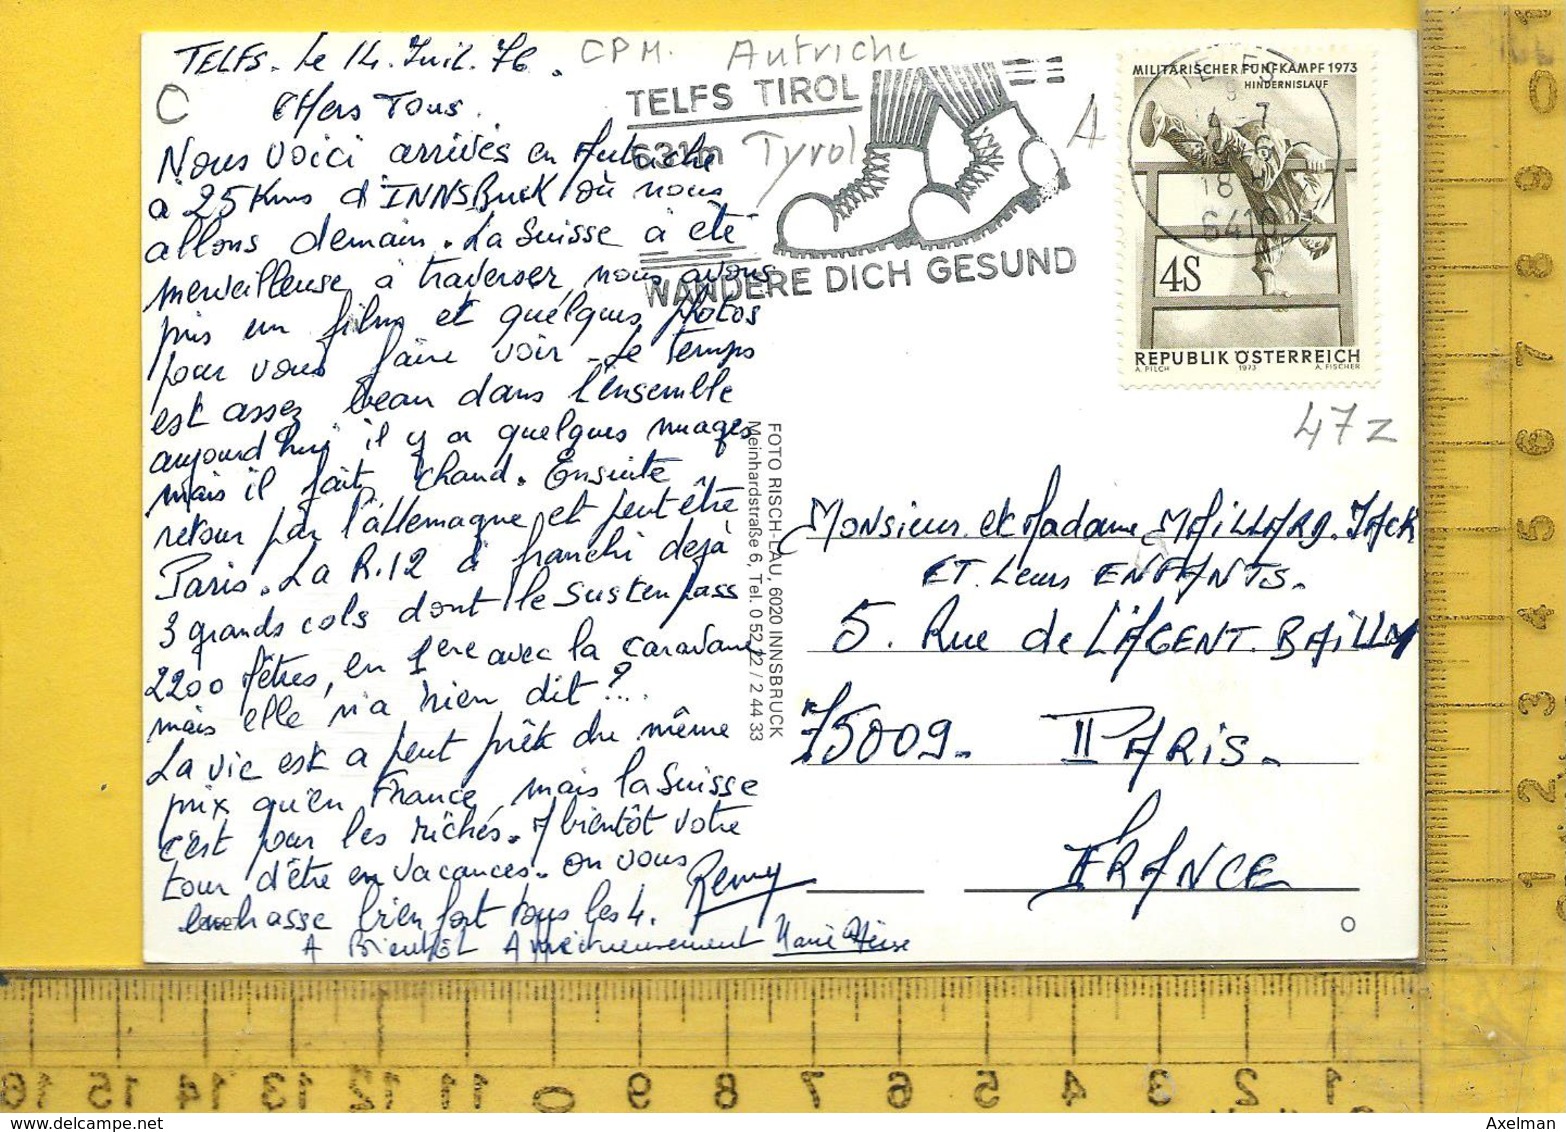 TELFS. Le 14. Juil. 76.
CHers Tous.
Nous voici arrivés en Autriche
à 25 Kms d'INNSBucK où nous
allons demain. La Suisse à été
merveilleuse à traverser, nous avons
pris un film et quelques photos
pour vous faire voir. Le temps
est assez beau dans l'ensemble
aujourd'hui il y a quelques nuages
mais il fait chaud. Ensuite
retour par l'allemagne et peut être
Paris. La R.12 à franchi dejà
3 grands cols dont le Susten pass
2200 Mètres, en 1ere avec la caravane
mais elle n'a rien dit ?...
La vie est a peut prêt du même
prix qu'en France, mais la Suisse
c'est pour les riches. A bientôt votre
tour d'être en vacances. on vous
embrasse bien fort tous les 4. Remy
A Bientôt Affectueusement
CPM. Autriche
Tyrol
C
A
TELFS TIROL
631m
WANDERE DICH GESUND
TELFS
6410
MILITÄRISCHER FÜNFKAMPF 1973
HINDERNISLAUF
4S
REPUBLIK ÖSTERREICH
A. PILCH 1973 A. FISCHER
47z
FOTO RISCH-LAU, 6020 INNSBRUCK
Meinhardstraße 6, Tel. 0 52 22 / 2 44 33
Monsieur et Madame MAILLARD. JACK
ET. Leurs ENFANTS.
5. Rue de L'AGENT. BAILLY
75009. PARIS.
FRANCE
0 9 8 7 6 5 4 3 2 1
16 15 14 13 12 11 0 9 8 7 6 5 4 3 2 1
www.delcampe.net
Axelman